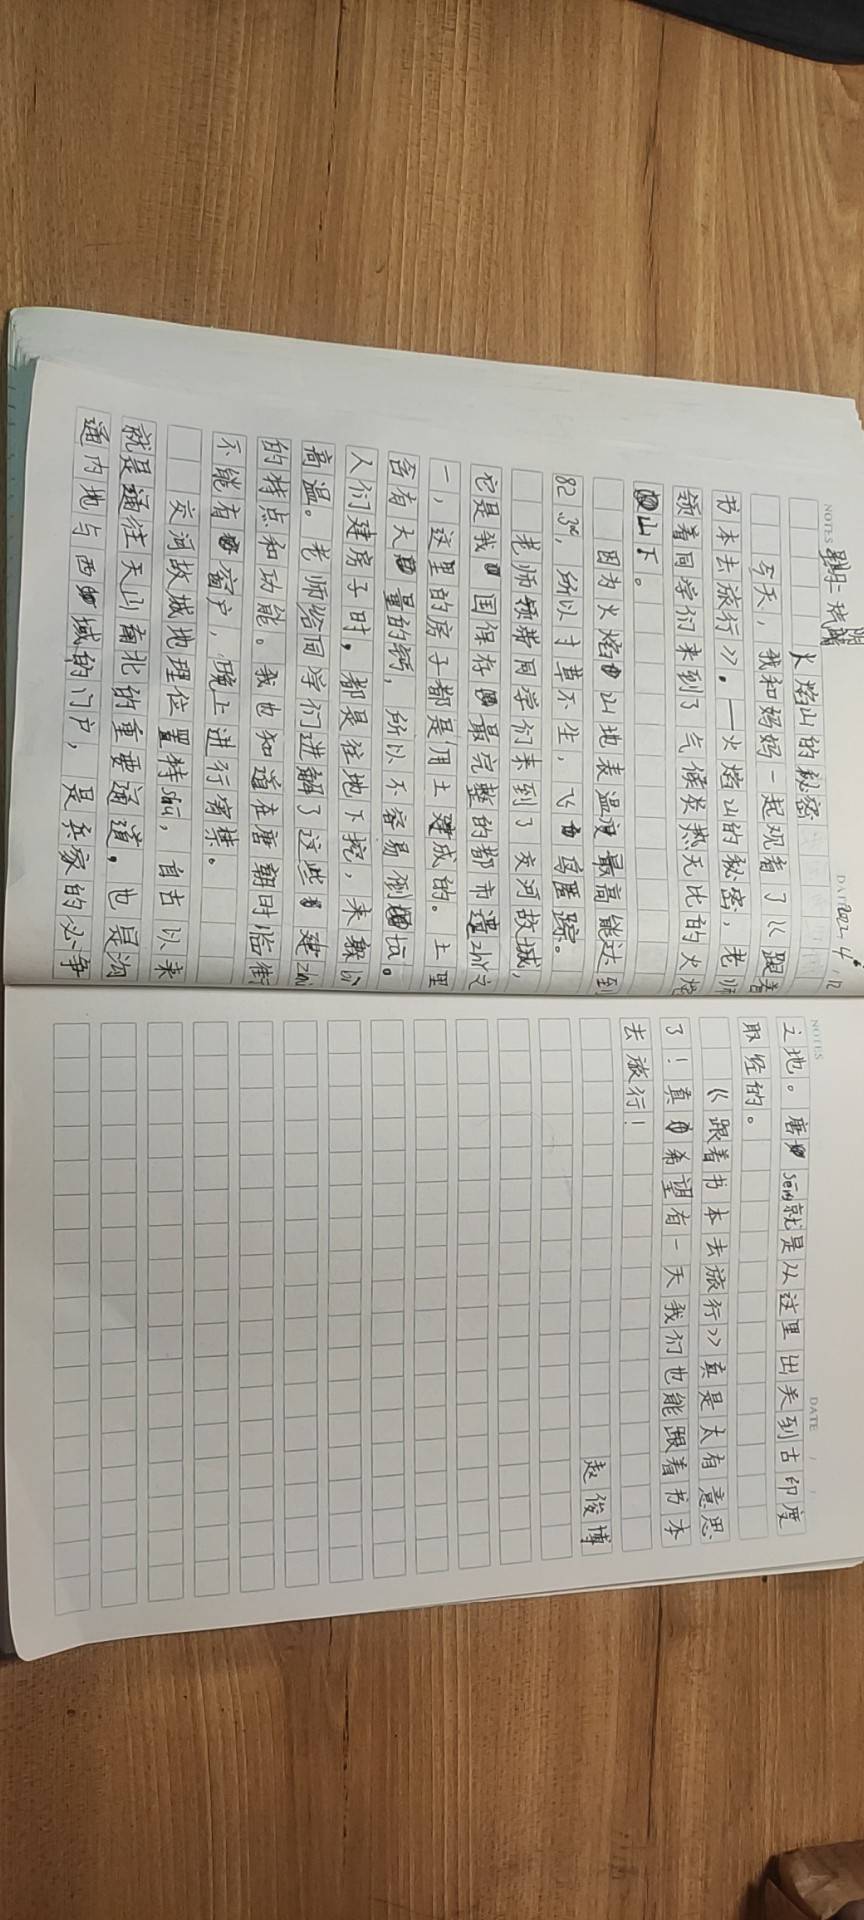 NOTES 星期二 晴
DATE 2022.4.12
火焰山的秘密
今天，我和妈妈一起观看了《跟着
书本去旅行》。——火焰山的秘密，老师
领着同学们来到了气候炎热无比的火焰
山下。
因为火焰山地表温度最高能达到
82.3℃，所以寸草不生，飞鸟匿踪。
老师领着同学们来到了交河故城，
它是我国保存最完整的都市遗zhǐ之
一，这里的房子都是用土建成的。土里
含有大量的钙，所以不容易倒坛。
人们建房子时，都是往地下挖，来躲
高温。老师给同学们进解了这些建zhù
的特点和功能。我也知道在唐朝时临街
不能有窗户，晚上进行宵禁。
交河故城地理位置特shū，自古以来
就是通往天山南北的重要通道，也是沟
通内地与西域的门户，是兵家的必争
NOTES
DATE / /
之地。唐sēng就是从这里出关到古印度
取经的。
《跟着书本去旅行》真是太有意思
了！真希望有一天我们也能跟着书本
去旅行！
赵俊博